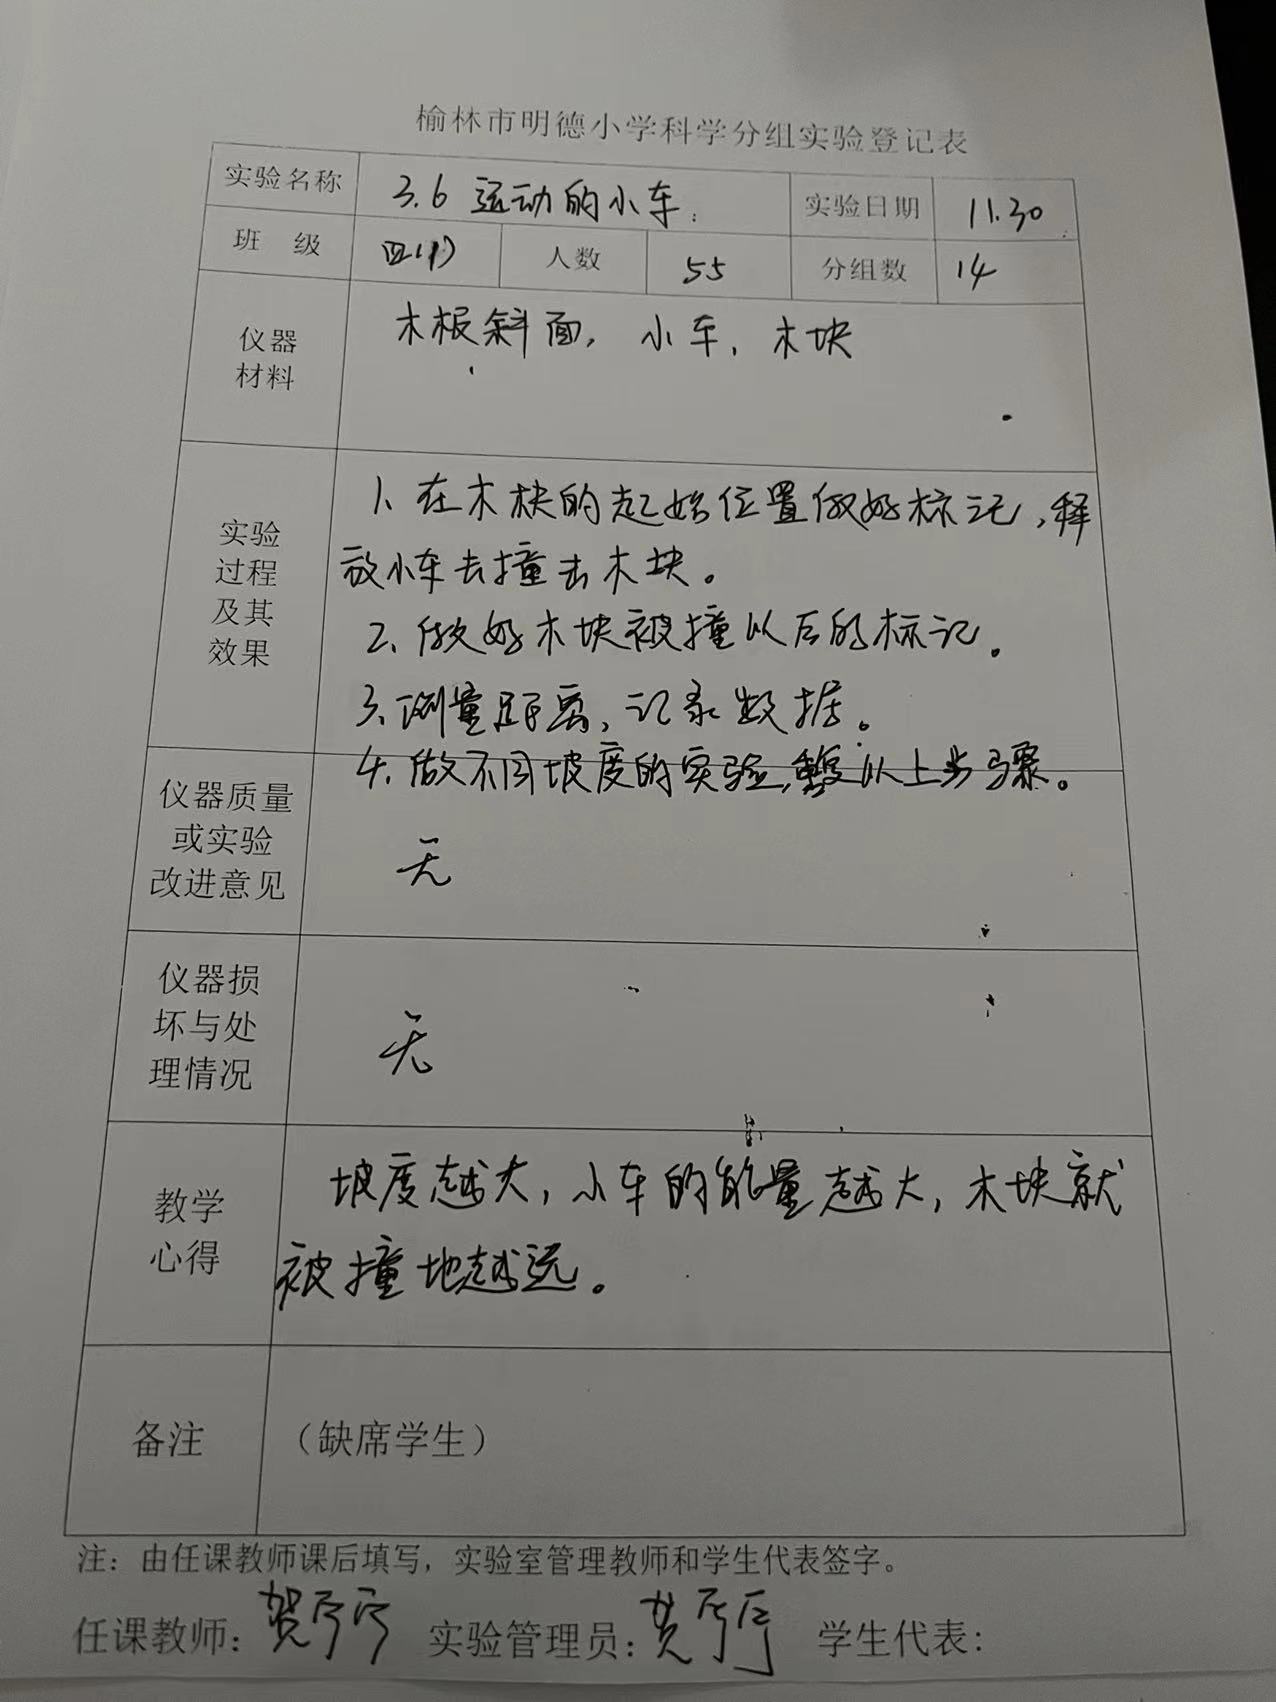 榆林市明德小学科学分组实验登记表
实验名称 3.6 运动的小车 实验日期 11.30
班 级 四(1) 人数 55 分组数 14
仪器
材料
木板斜面, 小车, 木块
实验
过程
及其
效果
1、在木块的起始位置做好标记,释
放小车去撞击木块。
2、做好木块被撞以后的标记。
3、测量距离,记录数据。
4、做不同坡度的实验,重复以上步骤。
仪器质量
或实验
改进意见
无
仪器损
坏与处
理情况
无
教学
心得
坡度越大,小车的能量越大,木块就
被撞地越远。
备注 (缺席学生)
注: 由任课教师课后填写, 实验室管理教师和学生代表签字。
任课教师: 贺 实验管理员: 学生代表: